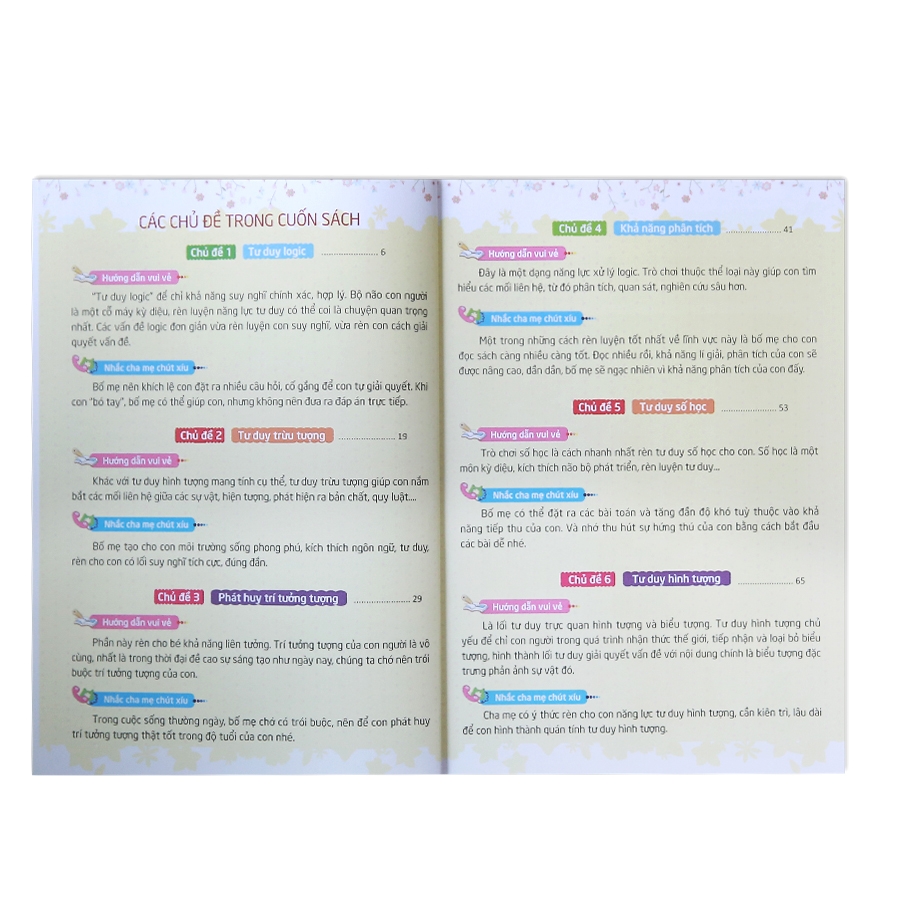 CÁC CHỦ ĐỀ TRONG CUỐN SÁCH
Chủ đề 1 Tư duy logic .................... 6
Hướng dẫn vui vẻ
"Tư duy logic" để chỉ khả năng suy nghĩ chính xác, hợp lý. Bộ não con người
là một cỗ máy kỳ diệu, rèn luyện năng lực tư duy có thể coi là chuyện quan trọng
nhất. Các vấn đề logic đơn giản vừa rèn luyện con suy nghĩ, vừa rèn con cách giải
quyết vấn đề.
Nhắc cha mẹ chút xíu
Bố mẹ nên khích lệ con đặt ra nhiều câu hỏi, cố gắng để con tự giải quyết. Khi
con "bó tay", bố mẹ có thể giúp con, nhưng không nên đưa ra đáp án trực tiếp.
Chủ đề 2 Tư duy trừu tượng .................... 19
Hướng dẫn vui vẻ
Khác với tư duy hình tượng mang tính cụ thể, tư duy trừu tượng giúp con nắm
bắt các mối liên hệ giữa các sự vật, hiện tượng, phát hiện ra bản chất, quy luật....
Nhắc cha mẹ chút xíu
Bố mẹ tạo cho con môi trường sống phong phú, kích thích ngôn ngữ, tư duy,
rèn cho con có lối suy nghĩ tích cực, đúng đắn.
Chủ đề 3 Phát huy trí tưởng tượng .................... 29
Hướng dẫn vui vẻ
Phần này rèn cho bé khả năng liên tưởng. Trí tưởng tượng của con người là vô
cùng, nhất là trong thời đại đề cao sự sáng tạo như ngày nay, chúng ta chớ nên trói
buộc trí tưởng tượng của con.
Nhắc cha mẹ chút xíu
Trong cuộc sống thường ngày, bố mẹ chớ có trói buộc, nên để con phát huy
trí tưởng tượng thật tốt trong độ tuổi của con nhé.
Chủ đề 4 Khả năng phân tích .................... 41
Hướng dẫn vui vẻ
Đây là một dạng năng lực xử lý logic. Trò chơi thuộc thể loại này giúp con tìm
hiểu các mối liên hệ, từ đó phân tích, quan sát, nghiên cứu sâu hơn.
Nhắc cha mẹ chút xíu
Một trong những cách rèn luyện tốt nhất về lĩnh vực này là bố mẹ cho con
đọc sách càng nhiều càng tốt. Đọc nhiều rồi, khả năng lí giải, phân tích của con sẽ
được nâng cao, dần dần, bố mẹ sẽ ngạc nhiên vì khả năng phân tích của con đấy.
Chủ đề 5 Tư duy số học .................... 53
Hướng dẫn vui vẻ
Trò chơi số học là cách nhanh nhất rèn tư duy số học cho con. Số học là một
môn kỳ diệu, kích thích não bộ phát triển, rèn luyện tư duy...
Nhắc cha mẹ chút xíu
Bố mẹ có thể đặt ra các bài toán và tăng dần độ khó tuỳ thuộc vào khả
năng tiếp thu của con. Và nhớ thu hút sự hứng thú của con bằng cách bắt đầu
các bài dễ nhé.
Chủ đề 6 Tư duy hình tượng .................... 65
Hướng dẫn vui vẻ
Là lối tư duy trực quan hình tượng và biểu tượng. Tư duy hình tượng chủ
yếu để chỉ con người trong quá trình nhận thức thế giới, tiếp nhận và loại bỏ biểu
tượng, hình thành lối tư duy giải quyết vấn đề với nội dung chính là biểu tượng đặc
trưng phản ảnh sự vật đó.
Nhắc cha mẹ chút xíu
Cha mẹ có ý thức rèn cho con năng lực tư duy hình tượng, cần kiên trì, lâu dài
để con hình thành quán tính tư duy hình tượng.